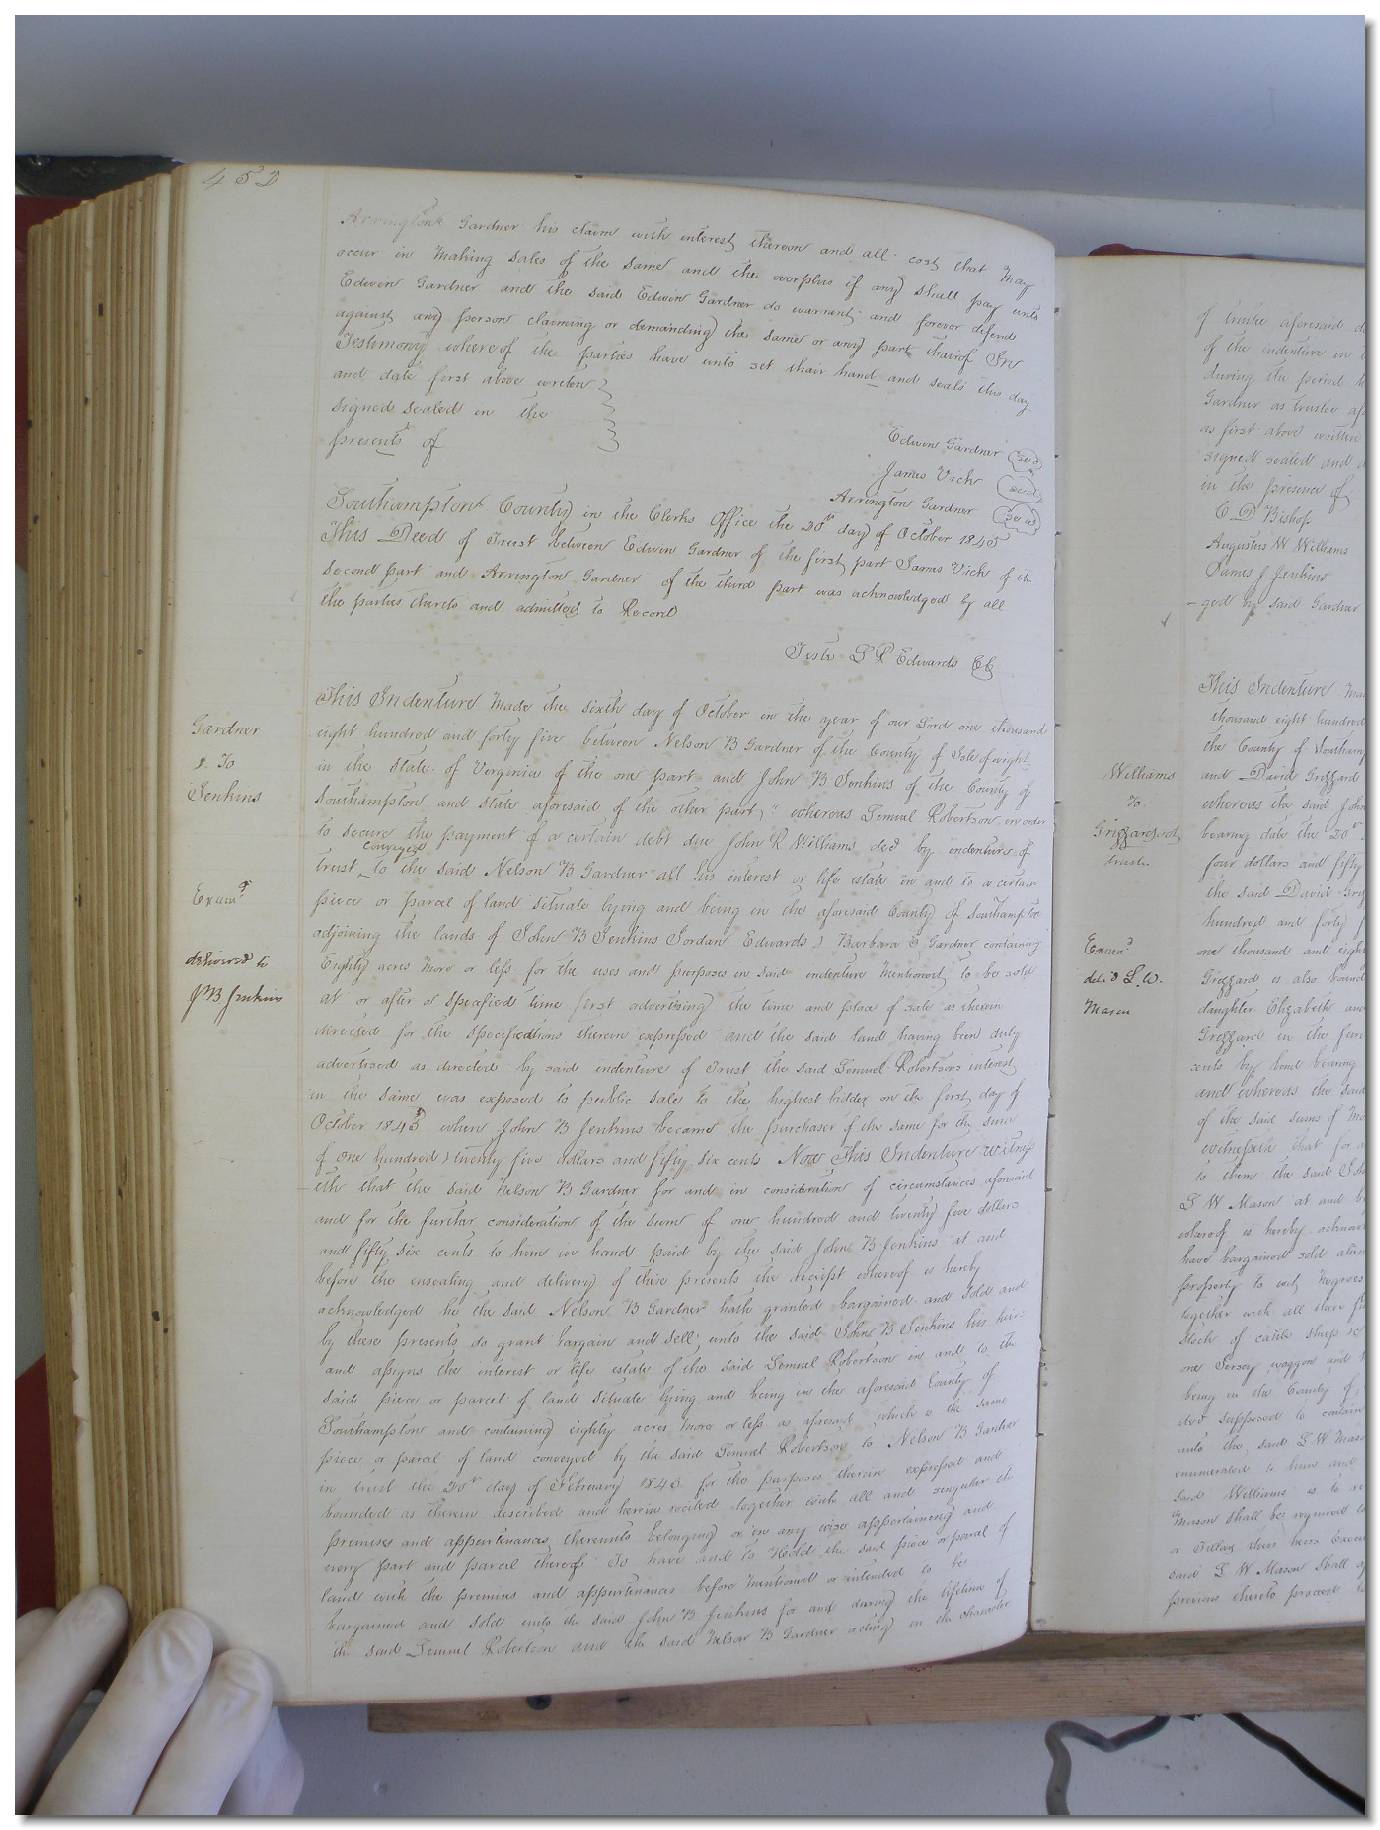 452
Arrington Gardner his claim with interest thereon and all cost that May
occur in Making Sales of the Same and the overplus if any Shall pay unto
Edwin Gardner and the said Edwin Gardner do warrent and forever defend
against any person claiming or demanding the same or any part thairof In
Testimony whereof the parties have unto set thair hand and seals this day
and date first above wreten
Signed Sealed in the
presents of
Edwin Gardner Seal
James Vick Seal
Arrington Gardner Seal
Southampton County in the Clerks Office the 20th day of October 1845
This Deed of Trust between Edwin Gardner of the first part James Vick of the
Second part and Arrington Gardner of the third part was acknowledged by all
the parties thereto and admitted to Record
Teste L R Edwards Clk
Gardner
To
Jenkins
Examd
delivered to
J B Jenkins
This Indenture Made the sixth day of October in the year of our Lord one thousand
eight hundred and forty five between Nelson B Gardner of the County of Isle of wight
in the State of Virginia of the one part and John B Jenkins of the County of
Southampton and State aforesaid of the other part, whereas Lemuel Robertson in order
to secure the payment of a certain debt due John R Williams decd by indenture of
trust conveyed to the said Nelson B Gardner all his interest or life estate in and to a certain
piece or parcel of land situate lying and being in the aforesaid County of Southampton
adjoining the lands of John B Jenkins Jordan Edwards & Barbara E Gardner containing
Eighty acres More or less for the uses and purposes in said indenture Mentioned, to be sold
at or after a Specified time first advertising the time and place of sale as therein
directed for the Specifications therein expressed and the said land having been duly
advertised as directed by said indenture of Trust the said Lemuel Robertsons interest
in the same was exposed to public sale to the highest bidder on the first day of
October 1845 when John B Jenkins became the purchaser of the same for the sum
of one hundred & twenty five dollars and fifty six cents Now This Indenture witness
eth that the said Nelson B Gardner for and in consideration of circumstances aforesaid
and for the further consideration of the sum of one hundred and twenty five dollars
and fifty six cents to him in hand paid by the said John B Jenkins at and
before the ensealing and delivery of these presents the receipt whereof is hereby
acknowledged he the said Nelson B Gardner hath granted bargained and Sold and
by these presents do grant bargain and sell unto the said John B Jenkins his heirs
and assigns the interest or life estate of the said Lemuel Robertson in and to the
said piece or parcel of land Situate lying and being in the aforesaid County of
Southampton and containing eighty acres More or less as aforesaid which is the same
piece or parcel of land conveyed by the said Lemuel Robertson to Nelson B Gardner
in trust the 20th day of February 1843 for the purposes therein expressed and
bounded as therein described and herein recited together with all and singular the
premises and appurtenances thereunto belonging or in any wise appertaining and
every part and parcel thereof To have and to Hold the said piece or parcel of
land with the premises and appurtenances before Mentioned or intended to be
bargained and sold unto the said John B Jenkins for and during the lifetime of
the said Lemuel Robertson and the said Nelson B Gardner acting in the character
of trustee aforesaid
of the indenture in
during the period
Gardner as trustee
as first above written
signed sealed and
in the presence of
C D Bishop
Augustus W Williams
James J Jenkins
ged by said Gardner
Williams
To
Grizzard
trust
Examd
deld L.W.
Mason
This Indenture
thousand eight hundred
the County of
and David Grizzard
whereas the said John
bearing date the 20th
four dollars and fifty
the said David
hundred and forty
one thousand and eight
Grizzard is also bound
daughter Elizabeth and
Grizzard in the
cents by bond bearing
and whereas the said
of the said sums of
witnesseth that for
to them the said
L W Mason at and
whereof is hereby
have bargained sold
property to wit, Negroes
together with all
Stock of cattle sheep
one Jersey waggon and
being in the County of
supposed to contain
unto the said L W Mason
enumerated to him and
said Williams is to
Mason Shall be required
said L W Mason Shall
previous thereto proceed